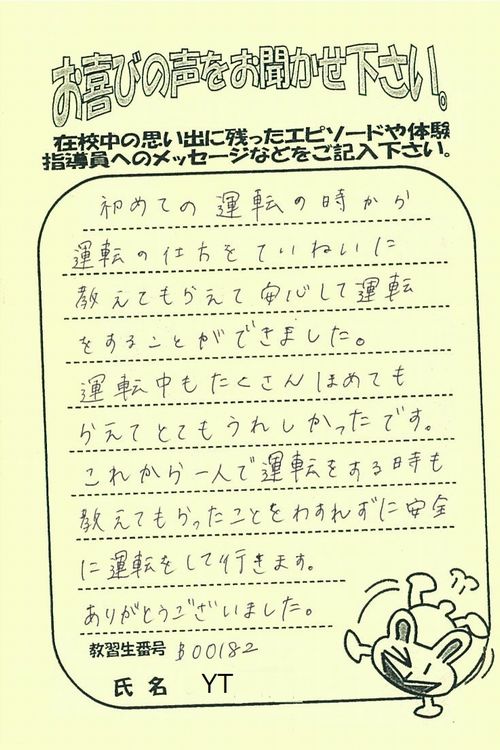 お喜びの声をお聞かせ下さい。
在校中の思い出に残ったエピソードや体験
指導員へのメッセージなどをご記入下さい。
初めての運転の時から
運転の仕方をていねいに
教えてもらえて安心して運転
をすることができました。
運転中もたくさんほめても
らえてとてもうれしかったです。
これから一人で運転をする時も
教えてもらったことをわすれずに安全
に運転をして行きます。
ありがとうございました。
教習生番号 B00182
氏名 YT